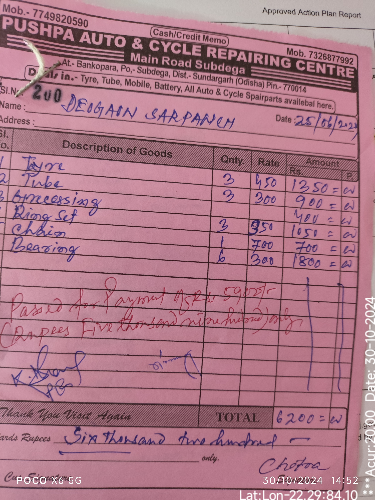 Approved Action Plan Report
Mob.- 7749820590
(Cash/Credit Memo)
Mob. 7326877992
PUSHPA AUTO & CYCLE REPAIRING CENTRE
Main Road Subdega
At.- Bankopara, Po.- Subdega, Dist.- Sundargarh (Odisha) Pin.-770014
in.- Tyre, Tube, Mobile, Battery, All Auto & Cycle Spairparts availebal here.
Sl.No. 200
Name : DEOGAON SARPANCH Date 25/06/202
Address :
Sl. No. Description of Goods Qnty. Rate Amount Rs. P.
1 Tyre 3 450 1350 = 00
2 Tube 3 300 900 = 00
3 Greacessing 400 = 00
Ring Set 3 350 1050 = 00
Chain 1 700 700 = 00
Bearing 6 300 1800 = 00
Passed for Payment of Rs 5900/-
(Rupees Five thousand nine hundred) only
Thank You Visit Again TOTAL 6200 = 00
ards Rupees Six thousand two hundred
only.
POCO X6 5G
30/10/2024 14:52
Lat:Lon-22.29:84.10
Date: 30-10-2024